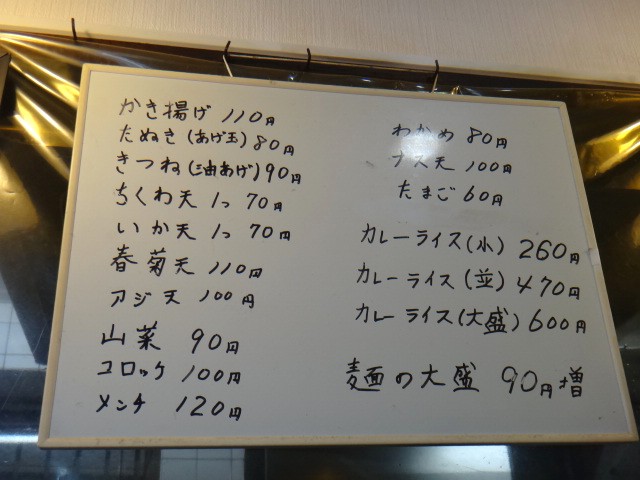 かき揚げ 110円
たぬき(あげ玉) 80円
きつね(油あげ) 90円
ちくわ天 1つ 70円
いか天 1つ 70円
春菊天 110円
アジ天 100円
山菜 90円
コロッケ 100円
メンチ 120円
わかめ 80円
ナス天 100円
たまご 60円
カレーライス(小) 260円
カレーライス(並) 470円
カレーライス(大盛) 600円
麺の大盛 90円増